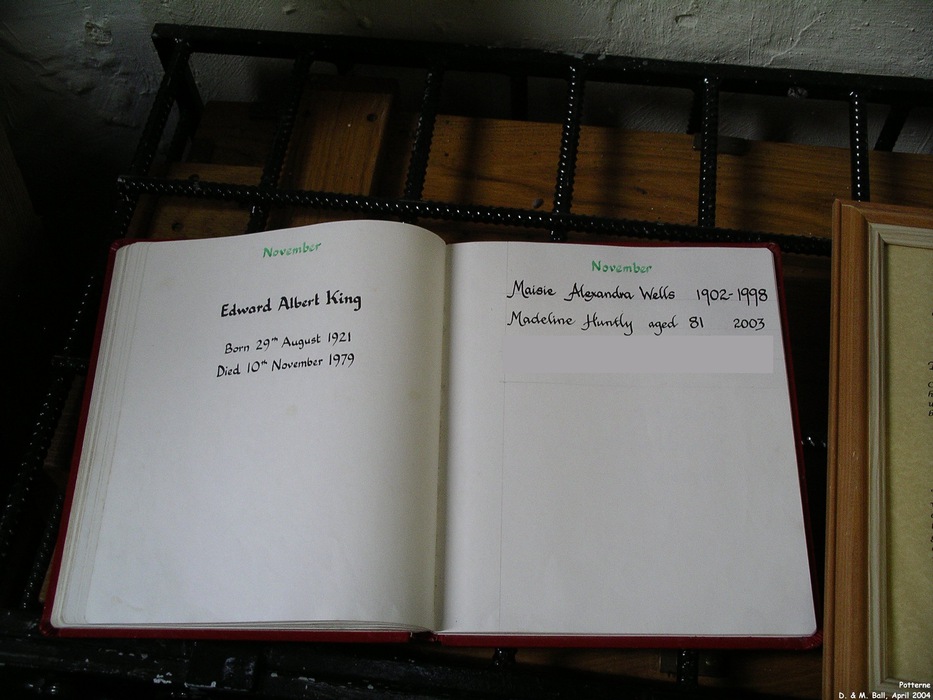 November
Edward Albert King
Born 29th August 1921
Died 10th November 1979
November
Maisie Alexandra Wells 1902-1998
Madeline Huntly aged 81 2003
Potterne
D. & M. Ball, April 2004